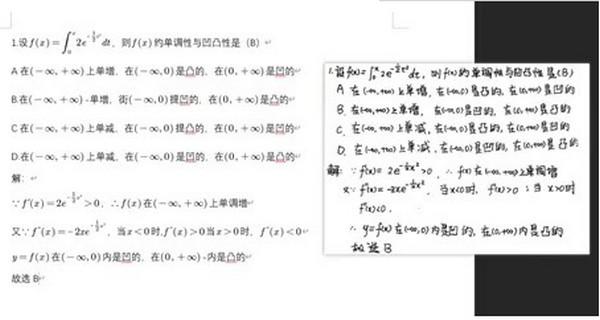 1.设f(x)=∫₀ˣ2e^{-½t²}dt，则f(x)约单调性与凹凸性是（B）
A在(-∞,+∞)上单增，在(-∞,0)是凸的，在(0,+∞)是凹的
B.在(-∞,+∞)-单增，街(-∞,0)提凹的，在(0,+∞)是凸的
C在(-∞,+∞)上单减，在(-∞,0)提凸的，在(0,+∞)是凹的
D.在(-∞,+∞)上单减，在(-∞,0)是凹的，在(0,+∞)是凸的
解：
∵f'(x)=2e^{-½x²}>0，∴f(x)在(-∞,+∞)上单调增
又∵f"(x)=-2xe^{-½x²}，当x<0时,f"(x)>0当x>0时，f"(x)<0
y=f(x)在(-∞,0)内是凹的，在(0,+∞)-内是凸的
故选B
1.设f(x)=∫₀ˣ2e^{-½t²}dt，则f(x)的单调性与凹凸性是(B)
A 在(-∞,+∞)上单增，在(-∞,0)是凸的，在(0,+∞)是凹的
B. 在(-∞,+∞)上单增，在(-∞,0)是凹的，在(0,+∞)是凸的
C. 在(-∞,+∞)上单减，在(-∞,0)是凸的，在(0,+∞)是凹的
D. 在(-∞,+∞)上单减，在(-∞,0)是凹的，在(0,+∞)是凸的
解：∵f'(x)=2e^{-½x²}>0，∴f(x)在(-∞,+∞)上单调增
又∵f"(x)=-2xe^{-½x²}，当x<0时，f"(x)>0；当x>0时
f"(x)<0.
∴y=f(x)在(-∞,0)内是凹的，在(0,+∞)内是凸的
故选B